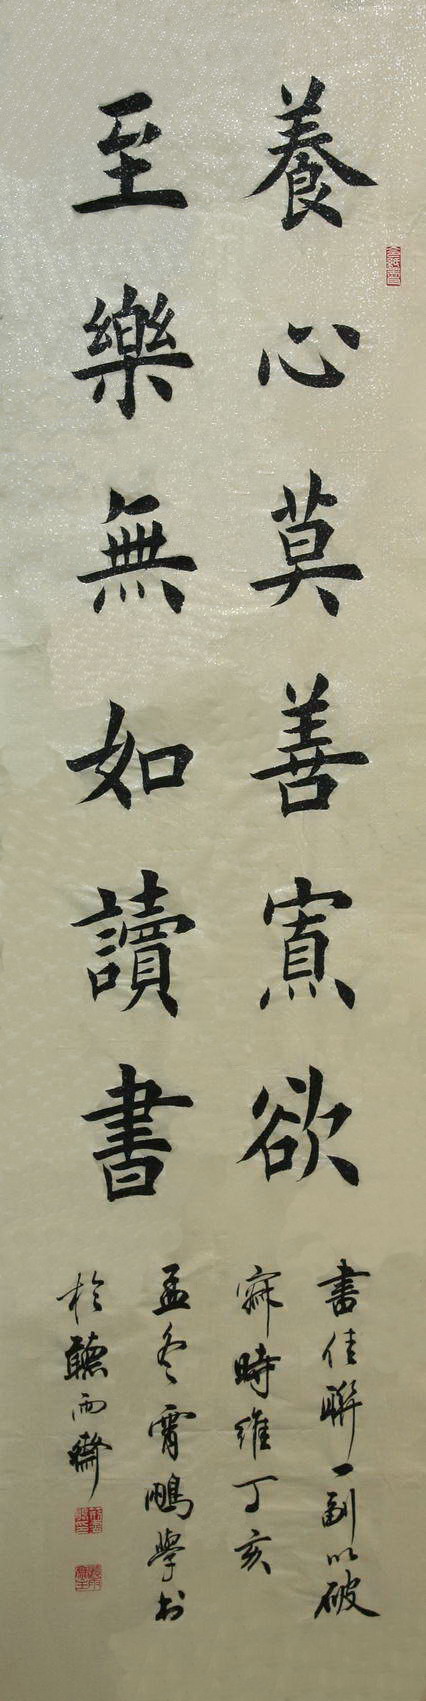 養心莫善寡欲
至樂無如讀書
書佳聯一副以破
寂時維丁亥
孟冬霄鵬學書
於聽雨齋